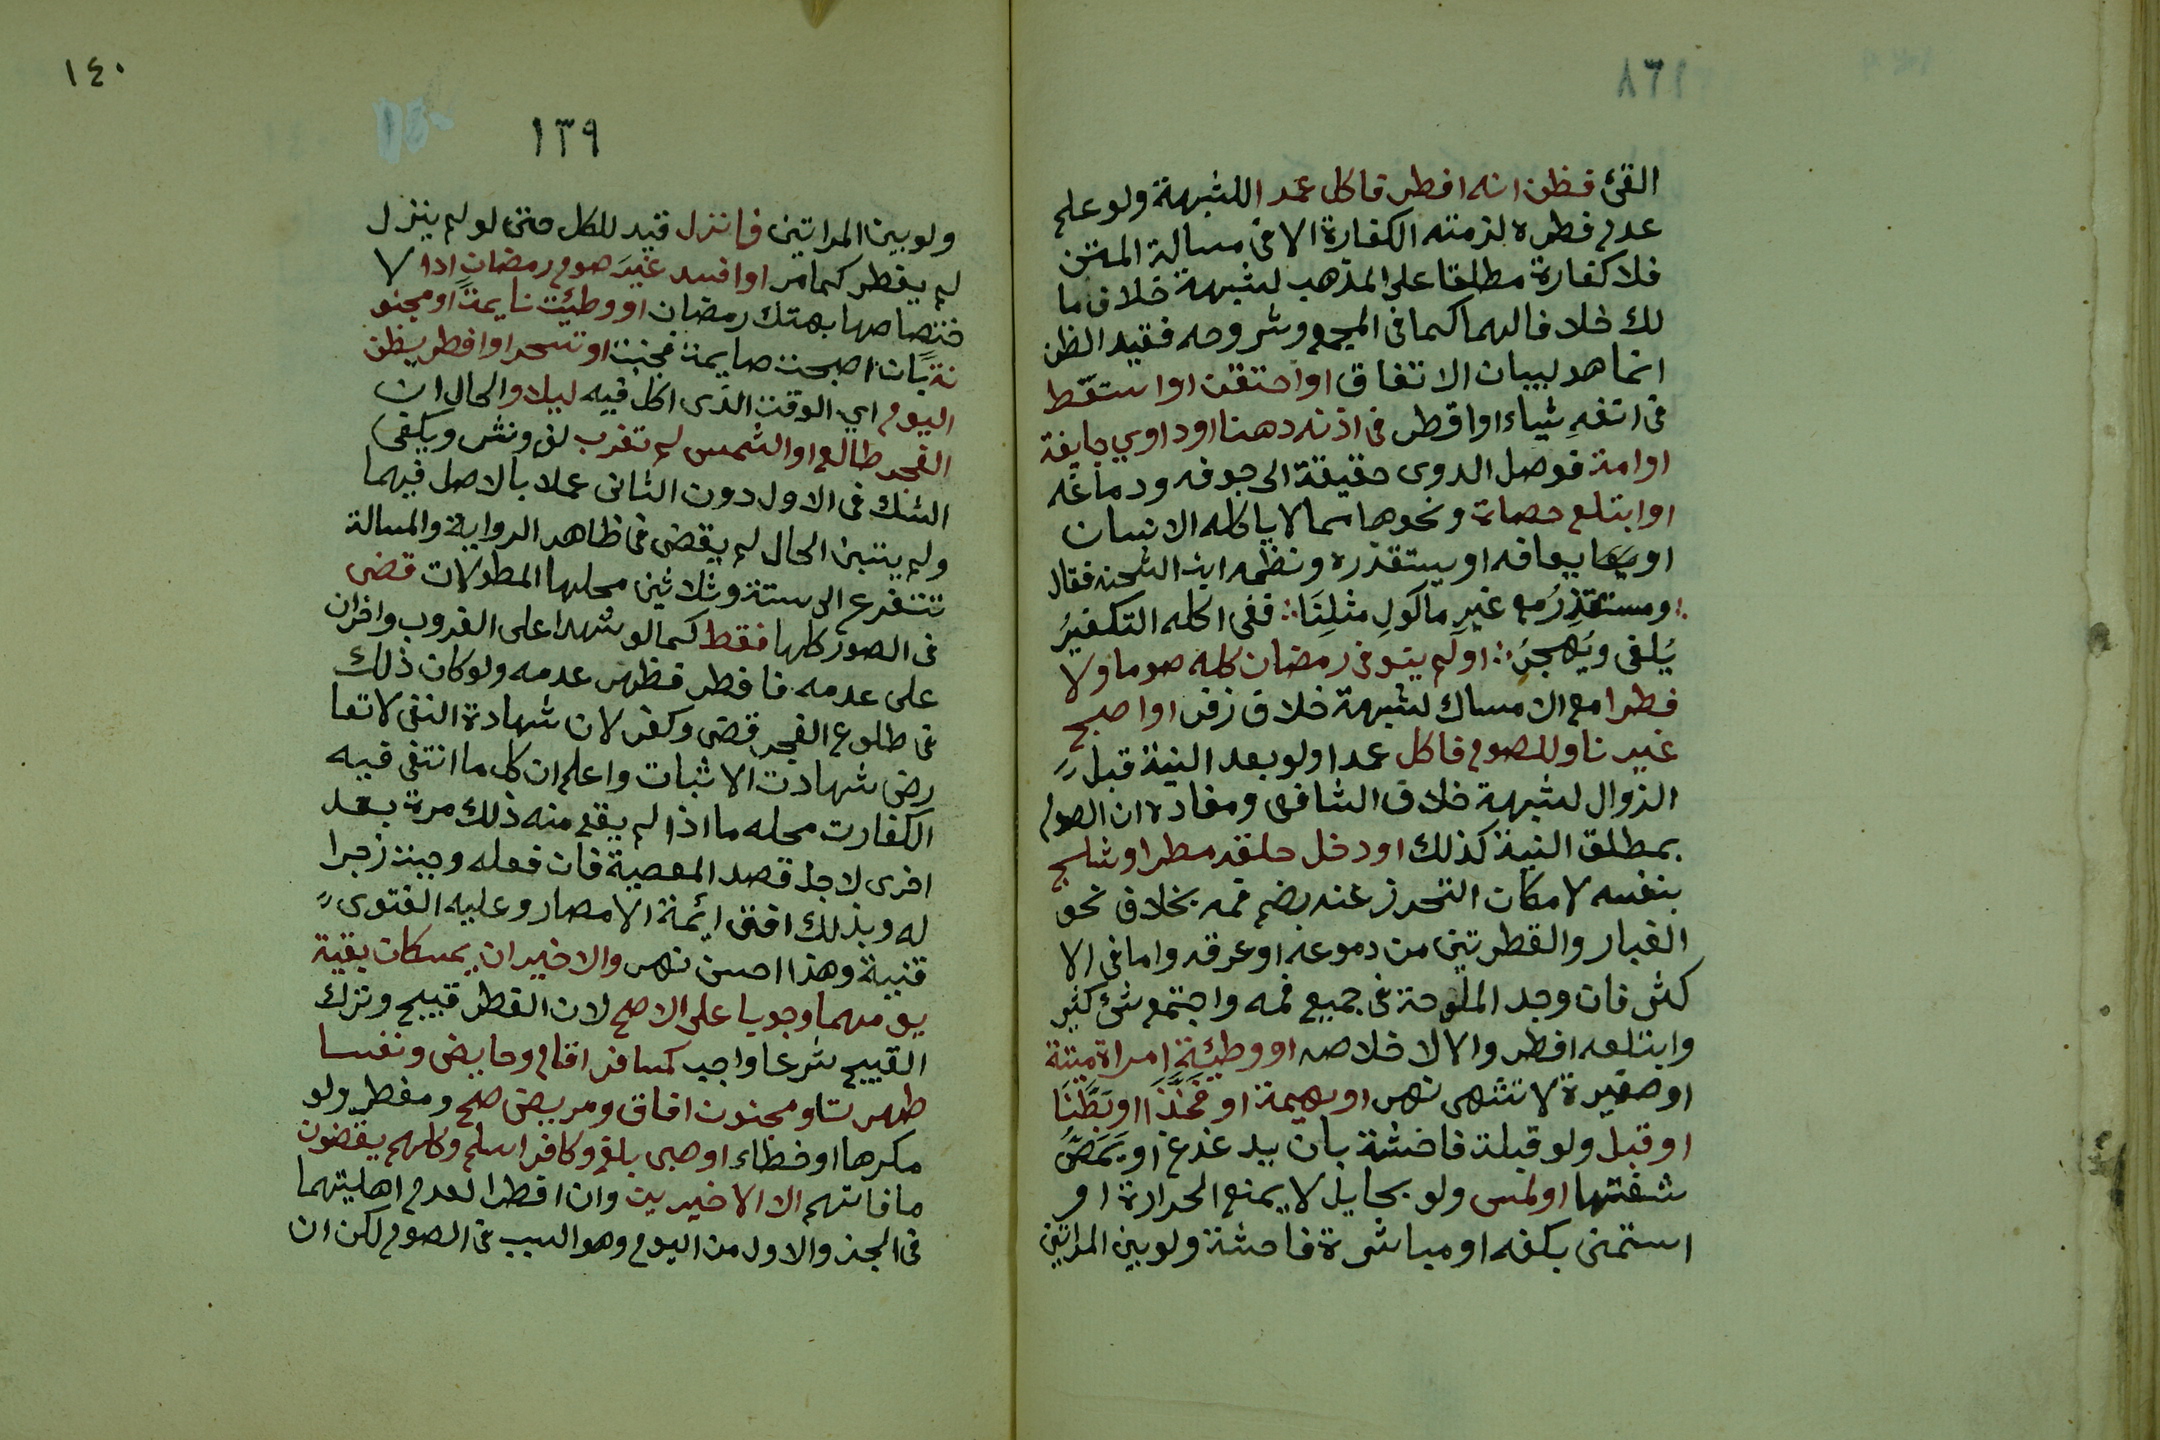 القئ فظن انه افطر فاكل عمدا للشبهة ولو علم
عدم فطره لزمته الكفارة الا فى مسالة المتن
فلا كفارة مطلقا على المذهب لشبهة خلاف ما
لك خلافا لهما كما فى المجمع وشروحه فقيد الظن
انما هد لبيان الاتفاق او احتقن او استعّط
فى انفهِ شياء او اقطر فى اذنه دهنا او داوي جايفة
او امة فوصل الدوى حقيقة الى جوفه ودماغه
او ابتلع حصاة ونحوها مما لا ياكله الانسان
او يعافه او يستقذره ونظمه ابن الشحنه فقال
ومستقذِرُ مع غيرِ ماكولِ مثلِنَا ففى اكله التكفيرُ
يُلغى ويُهجرُ او لم ينو فى رمضان كله صوما ولا
فطرا مع الامساك لشبهة خلاف زفر او اصبح
غير ناو للصوم فاكل عمدا ولو بعد النية قبل
الزوال لشبهة خلاف الشافعى ومفاده ان الصوم
بمطلق النية كذلك او دخل حلقه مطر او شلج
بنفسه لامكان التحرز عنه بضم فمه بخلاف نحو
الغبار والقطرتين من دموعه او عرقه واما فى الا
كثر فان وجد الملوحة فى جميع فمه واجتمع شئ كثير
وابتلعه افطر والا لا خلاصه او وطيئَةِ امراة ميتة
او صغيرة لا تشهى نهر او بهيمة او فَخَّذًا او بَطَّنَا
او قبل ولو قبلة فاخشة بان يد غدغ او يَمَصَّ
شفتها او لمس ولو بحايل لا يمنع الحرارة او
استمنى بكفه او مباشرة فاحشة ولو بين المراتين
١٤٠
١٣٩
ولو بين المراتين فانزل قيد للكل حتى لو لم ينزل
لم يفطر كما مر او افسد غيَر صوم رمضان ادا لا
ختصاصها بهتك رمضان او وطئت نايمةً او مجنو
نةً بان اصبحت صايمة فجنت او تسحر او افطر يظن
اليوم اي الوقت الذى اكل فيه ليلا والحال ان
الفجر طالع او الشمس لم تغرب لف ونشر ويكفى
الشك فى الاول دون الثانى عملا بالاصل فيهما
ولم يتبين الحال لم يقض فى ظاهر الرواية والمسالة
تتفرع الى ستة وثلاثين محلها المطولات قضى
فى الصور كلها فقط كما لو شهدا على الغروب واخران
على عدمه فافطر فظهر عدمه ولو كان ذلك
فى طلوع الفجر قضى وكفر لان شهادة النفى لا تعا
رض شهادت الاثبات واعلم ان كل ما انتفى فيه
الكفارت محله ما اذا لم يقع منه ذلك مرة بعد
اخرى لاجل قصد المعصية فان فعله وجبت زجرا
له وبذلك افتى ايئمة الامصار وعليه الفتوى
قنية وهذا احسن نهر والاخيران يمسكان بقية
يومهما وجوبا على الاصح لان الفطر قبيح وترك
القبيح شرعا واجب كمسافر اقام وحايض ونفسا
طهرتا ومجنون افاق ومريض صح ومفطر ولو
مكرها او خطاء او صبى بلغ وكافر اسلم وكلهم يقضون
ما فاتهم الا الاخيرين وان افطرا لعدم اهليتهما
فى الجز والاول من اليوم وهو السبب فى الصوم لكن ان